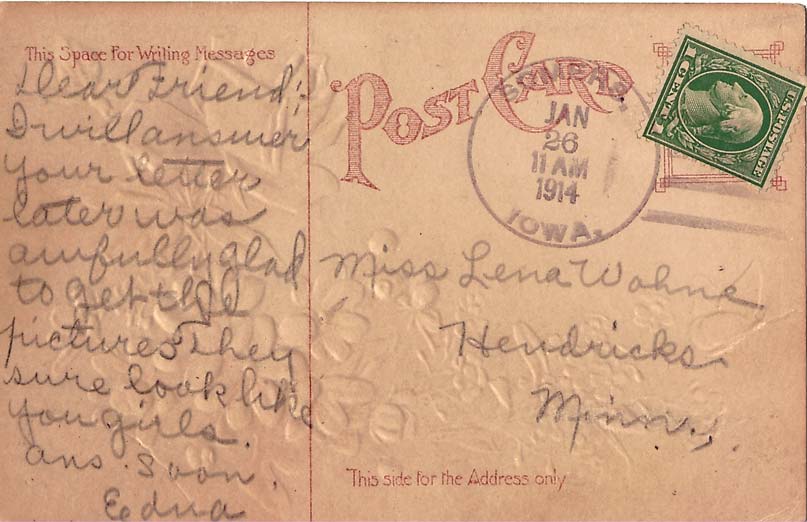 This Space For Writing Messages
POST CARD
JAN
26
11 AM
1914
IOWA.
U.S. POSTAGE
1 CENT 1
Dear Friend;
I will answer
your letter
later was
awfully glad
to get the
pictures They
sure look like
you girls.
ans. soon.
Edna
Miss Lena Wohne
Hendricks
Minn.,
This side for the Address only